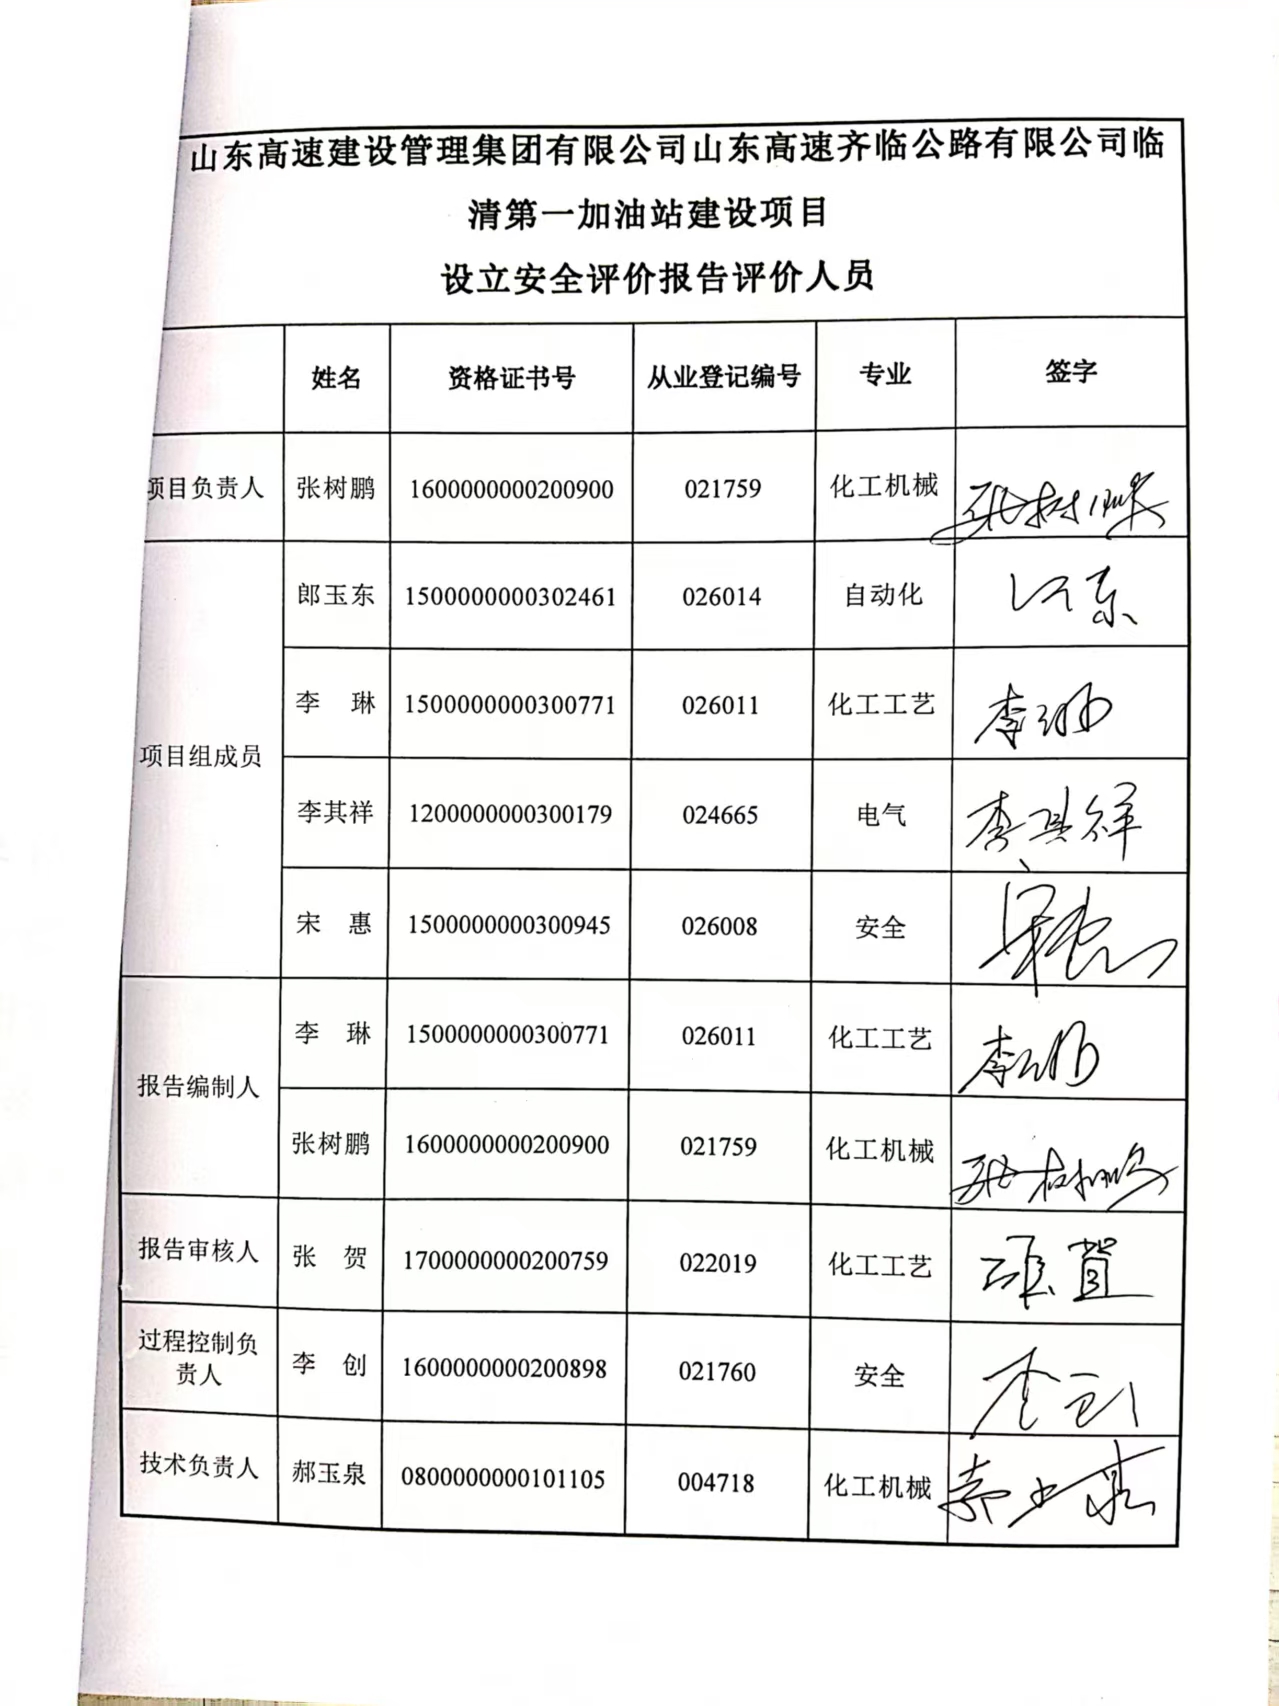 山东高速建设管理集团有限公司山东高速齐临公路有限公司临
清第一加油站建设项目
设立安全评价报告评价人员
姓名 资格证书号 从业登记编号 专业 签字
项目负责人 张树鹏 1600000000200900 021759 化工机械 张树鹏
项目组成员
郎玉东 1500000000302461 026014 自动化
李 琳 1500000000300771 026011 化工工艺 李琳
李其祥 1200000000300179 024665 电气 李其祥
宋 惠 1500000000300945 026008 安全 宋惠
报告编制人
李 琳 1500000000300771 026011 化工工艺 李琳
张树鹏 1600000000200900 021759 化工机械 张树鹏
报告审核人 张 贺 1700000000200759 022019 化工工艺 张贺
过程控制负
责人
李 创 1600000000200898 021760 安全 李创
技术负责人 郝玉泉 0800000000101105 004718 化工机械 郝玉泉